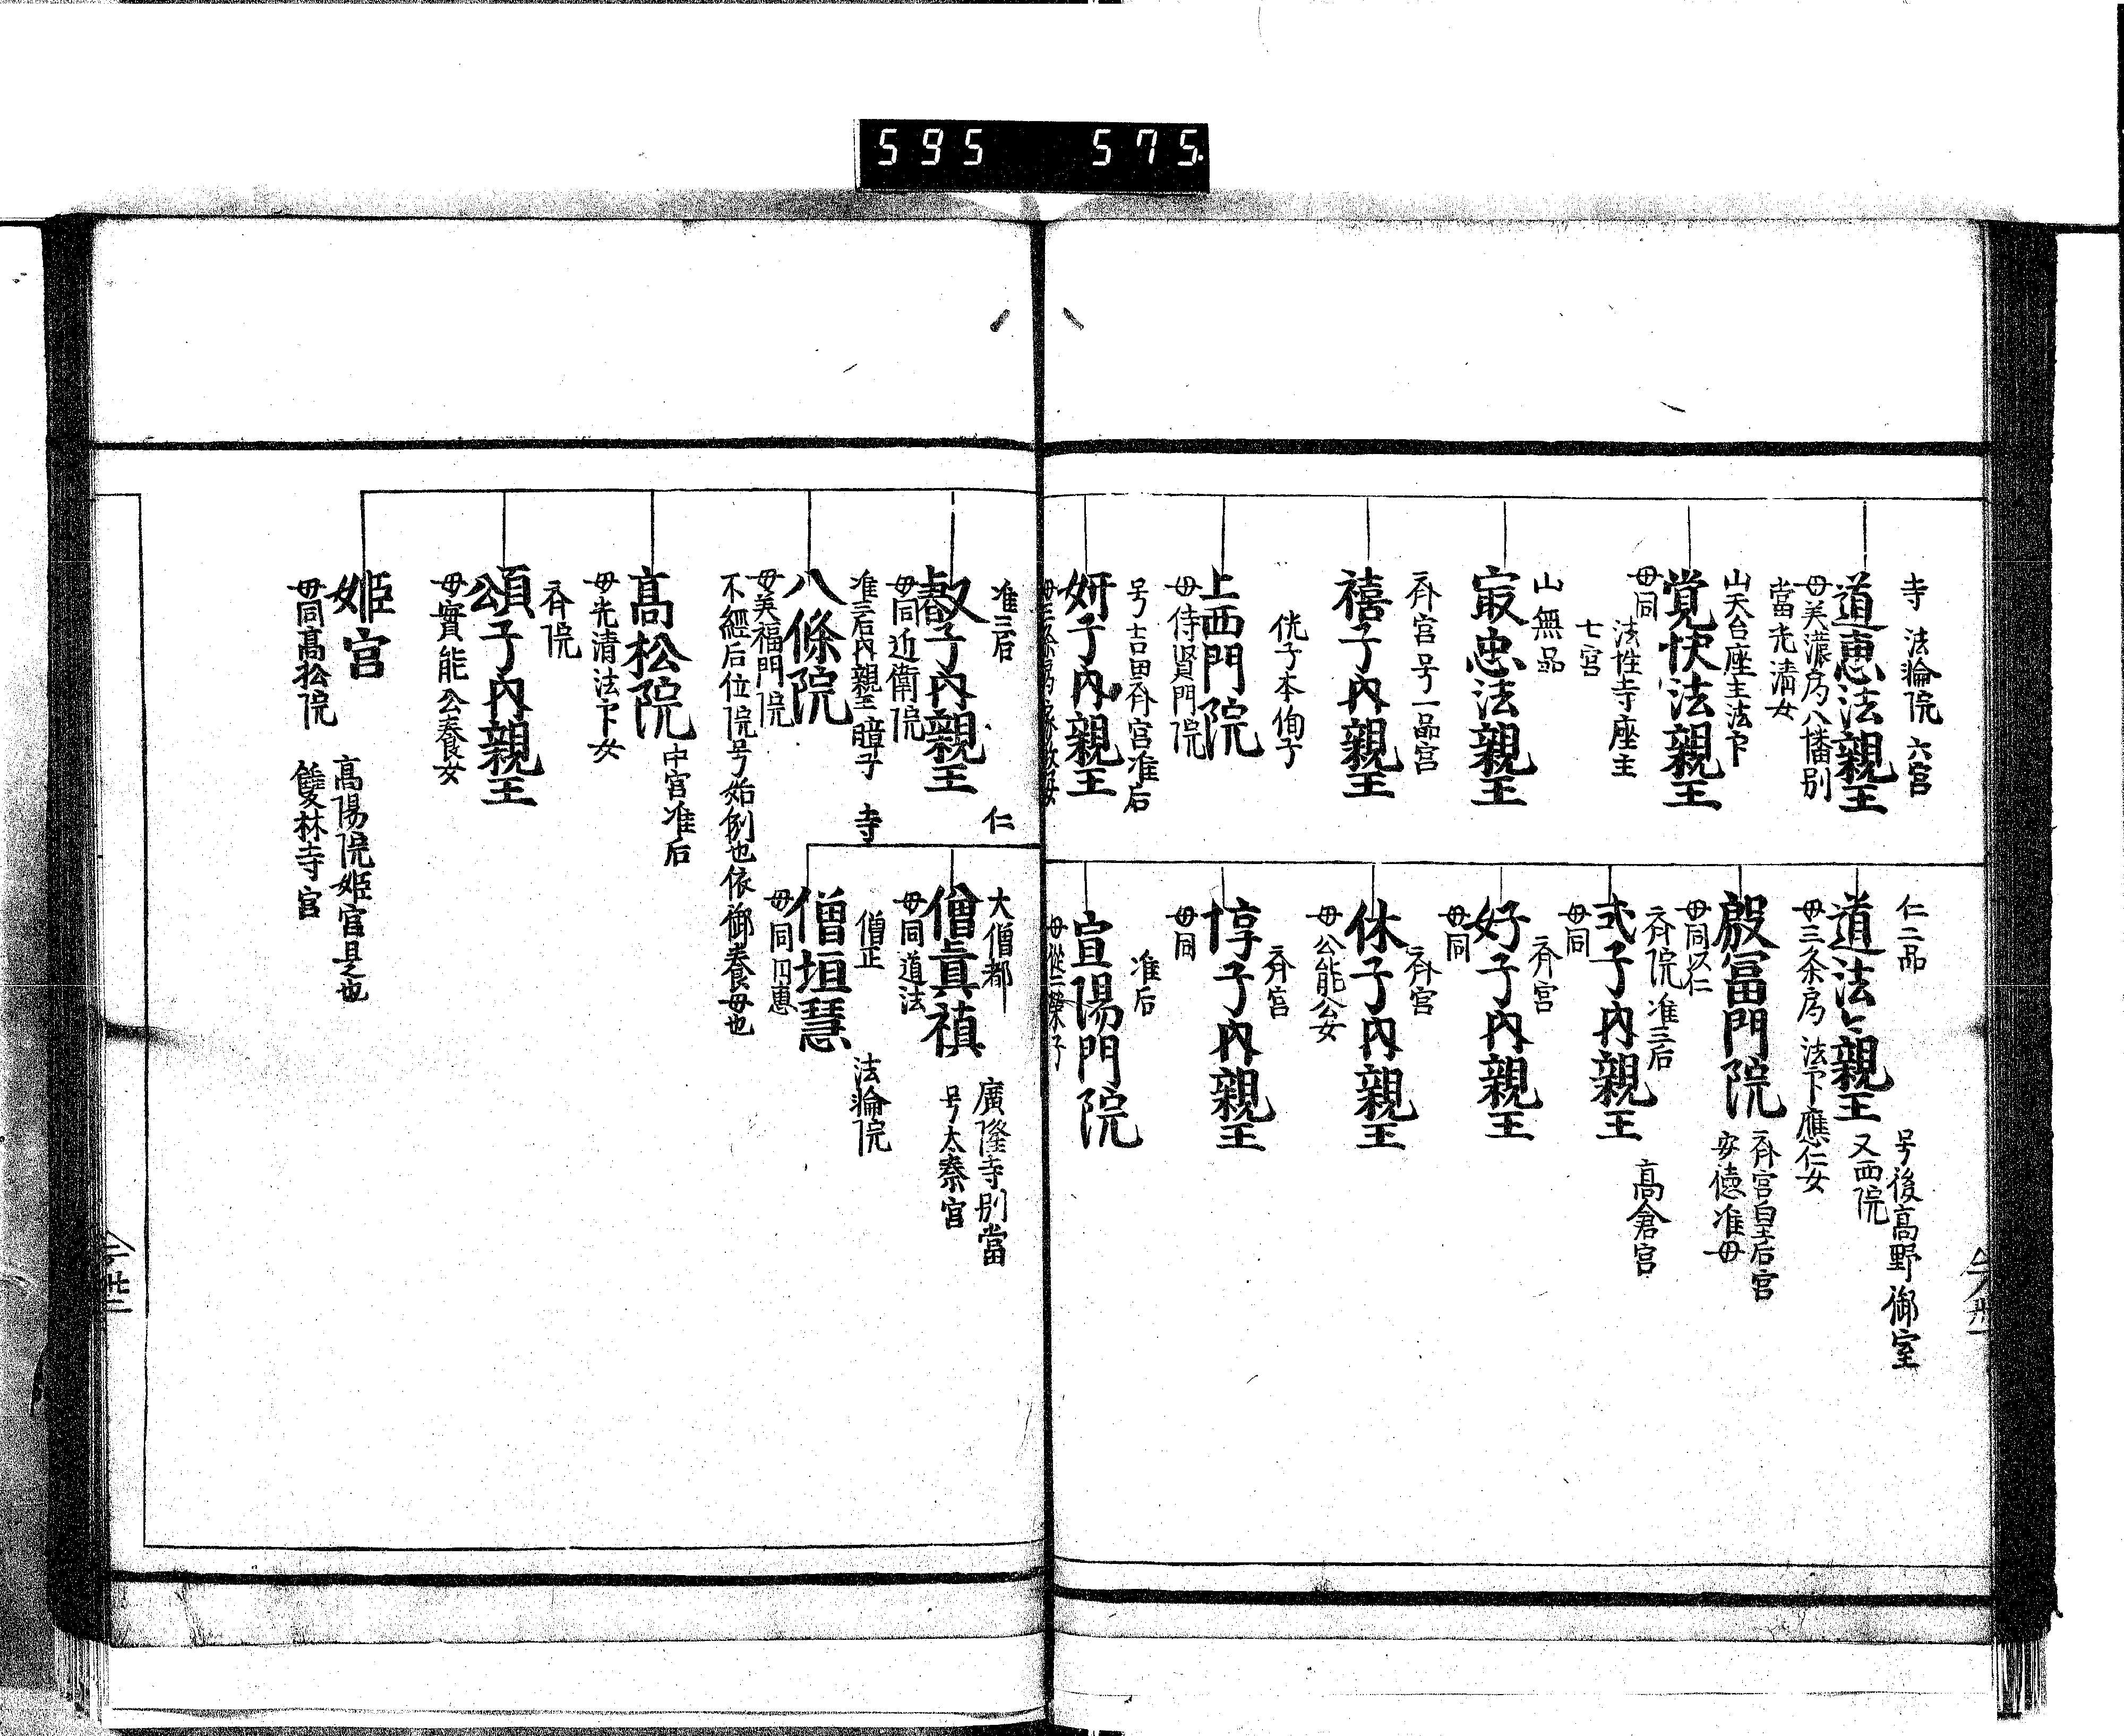 595 575
寺 法輪院 六宮
道恵法親王
母美濃局八幡別
當光清女
山天台座主法下
覚快法親王
母同
法性寺座主
七宮
山無品
最忠法親王
斉宮号一品宮
禧子内親王
恍子本恂子
上西門院
母侍賢門院
号吉田斉宮准后
妍子内親王
仁二品
道法々親王
号後高野御室
又西院
母三条局法下應仁女
殷冨門院
斉宮皇后宮
安徳准母
母同又仁
斉院准三后
式子内親王
高倉宮
母同
斉宮
好子内親王
母同
斉宮
休子内親王
母公能公女
斉宮
惇子内親王
母同
准后
宣陽門院
准三后
叡子内親王
母同近衛院
准三后内親王暲子
八條院
母美福門院
不經后位院号始例也依御養母也
高松院
中宮准后
母光清法下女
斉院
頌子内親王
母實能公養女
姫宮
高陽院姫宮是也
母同高松院
雙林寺宮
仁
大僧都
僧眞禎
廣隆寺別當
号太秦宮
母同道法
寺
僧正
僧垣慧
法輪院
母同円恵